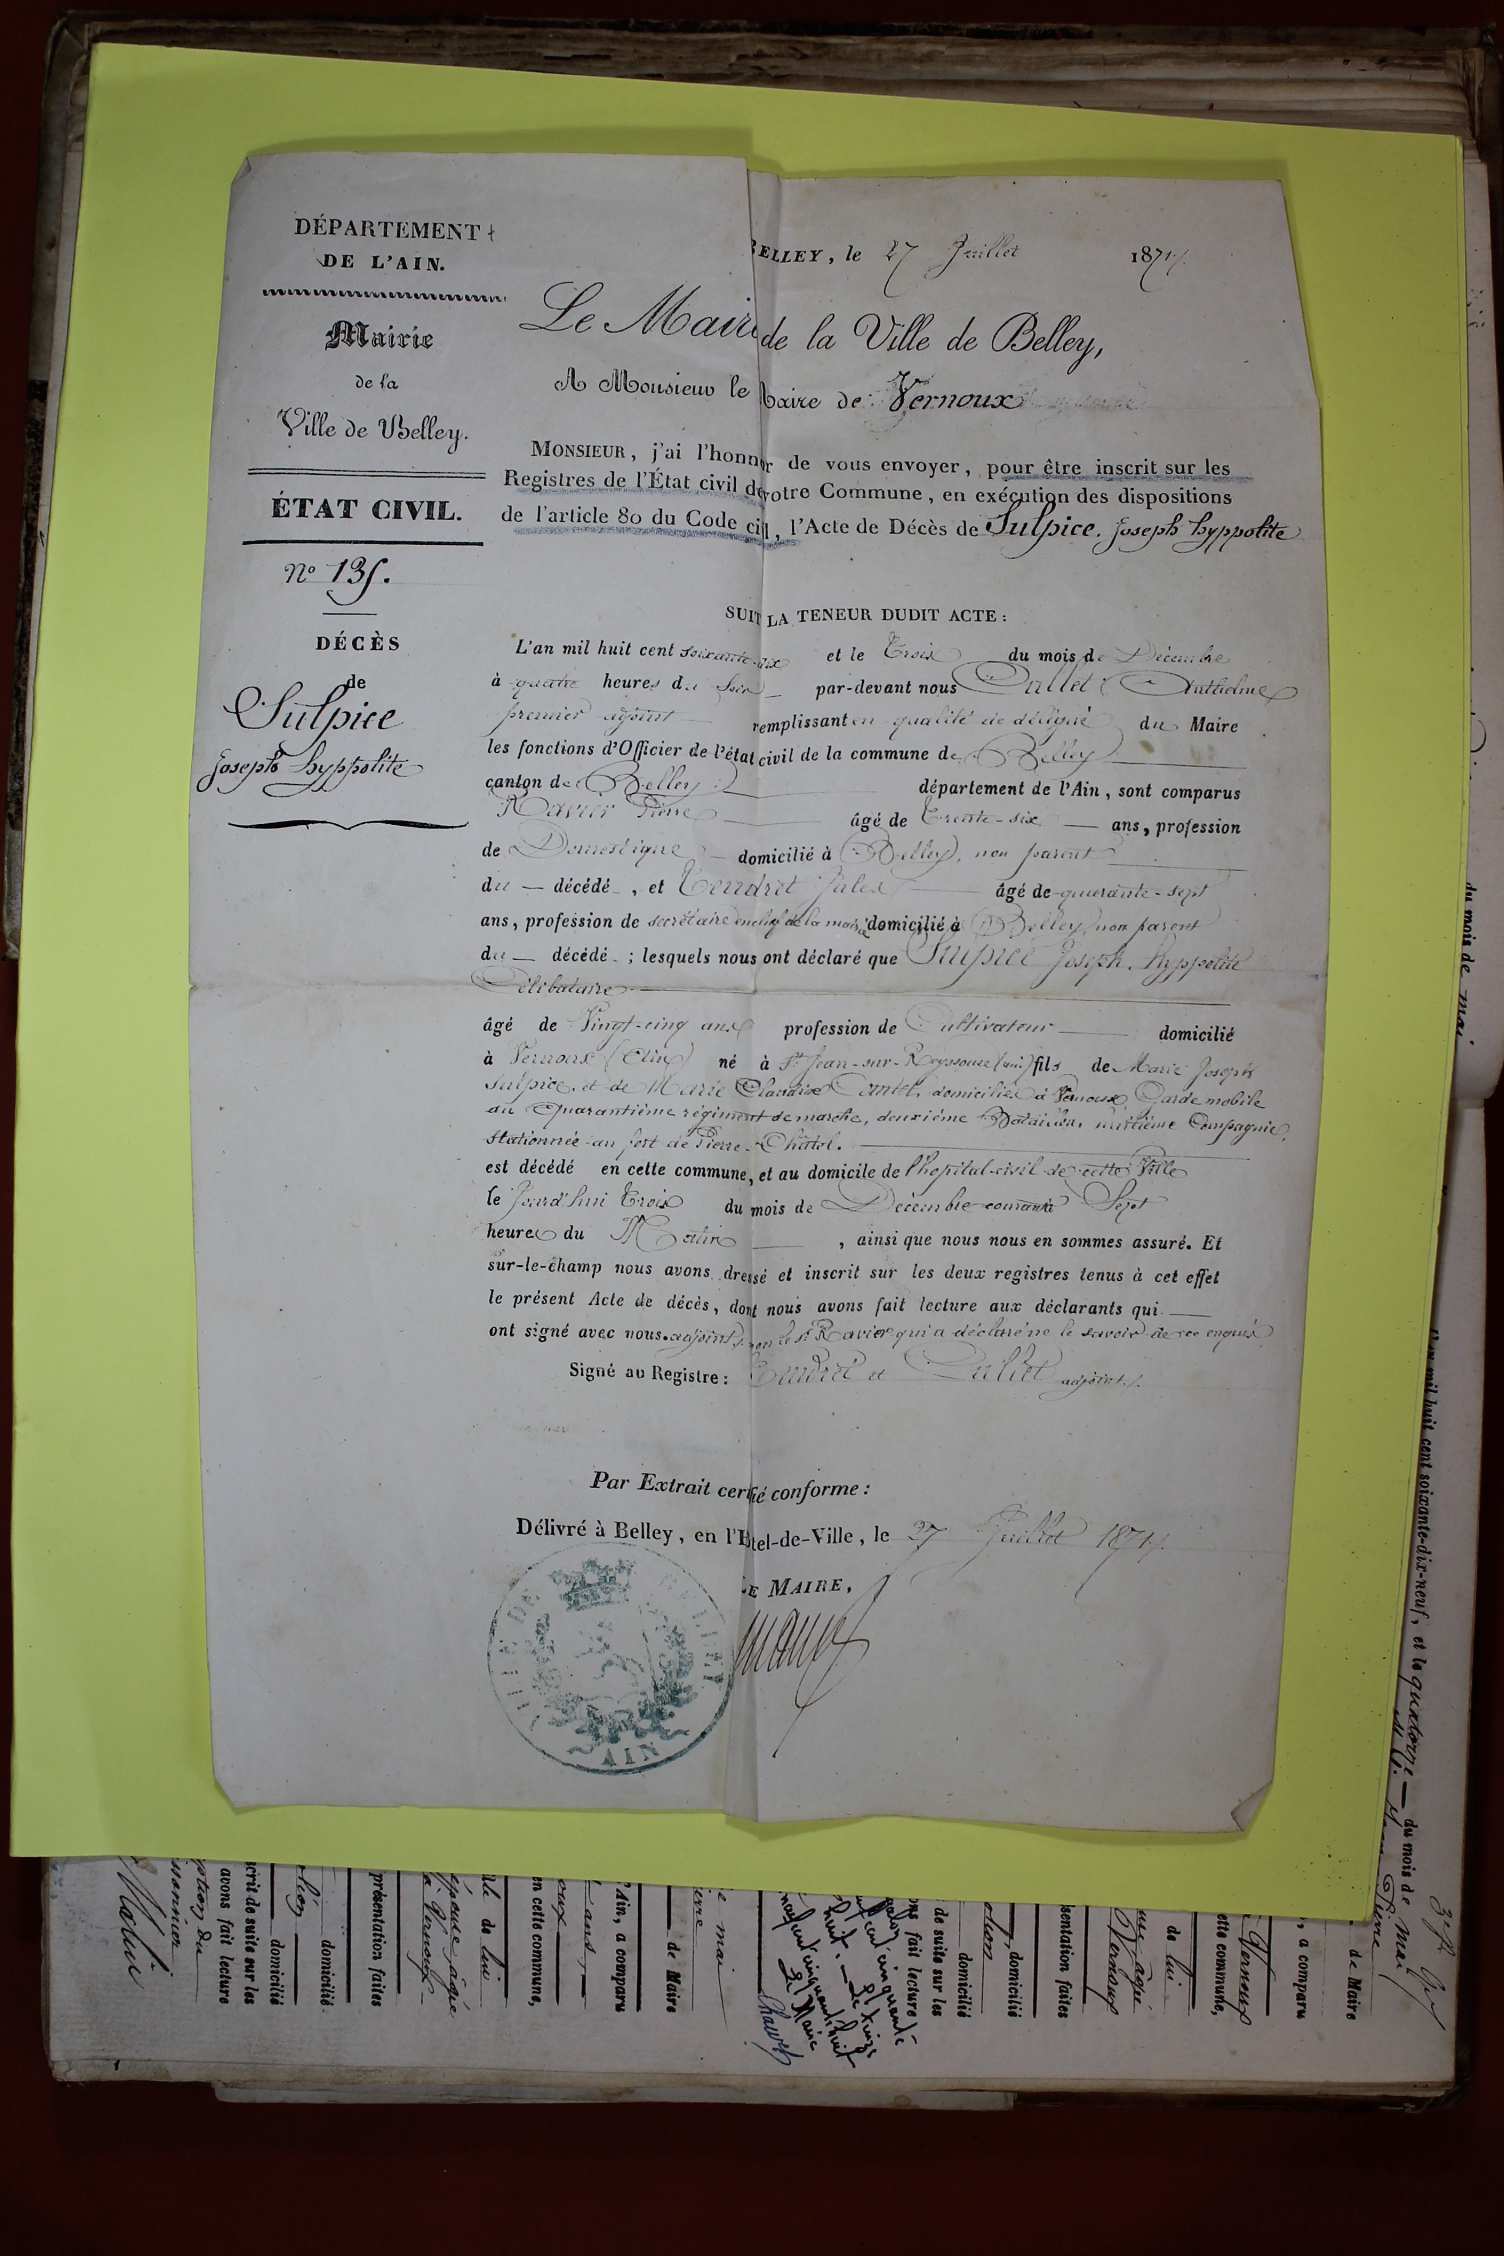 DÉPARTEMENT
DE L'AIN.
Mairie
de la
Ville de Belley.
ÉTAT CIVIL.
N° 135.
DÉCÈS
de
Sulpice
Joseph hyppolite
BELLEY, le 27 Juillet 1871.
Le Maire de la Ville de Belley,
A Monsieur le Maire de Vernoux
MONSIEUR, j'ai l'honneur de vous envoyer, pour être inscrit sur les
Registres de l'État civil de votre Commune, en exécution des dispositions
de l'article 80 du Code civil, l'Acte de Décès de Sulpice. Joseph hyppolite
SUIT LA TENEUR DUDIT ACTE :
L'an mil huit cent soixante-dix et le Trois du mois de Décembre
à quatre heures du Soir par-devant nous Cullet Anthelme
premier adjoint remplissant en qualité de délégué du Maire
les fonctions d'Officier de l'état civil de la commune de Belley
canton de Belley département de l'Ain, sont comparus
Ravier Pierre âgé de Trente-six ans, profession
de Domestique domicilié à Belley, non parent
du décédé, et Tendret Jules âgé de quarante-sept
ans, profession de secrétaire en chef de la mairie domicilié à Belley non parent
du décédé ; lesquels nous ont déclaré que Sulpice Joseph. hyppolite
Célibataire
âgé de Vingt-cinq ans profession de Cultivateur domicilié
à Vernoux (Ain) né à St Jean-sur-Reyssouze (ain) fils de Marie Joseph
Sulpice, et de Marie Claudine domiciliés à Vernoux, Garde mobile
au Quarantième régiment de marche, deuxième Bataillon, huitième Compagnie,
stationnée au fort de Pierre-Châtel.
est décédé en cette commune, et au domicile de l'hopital-civil de cette Ville
le Jourd'hui Trois du mois de Décembre courant à Sept
heures du Matin, ainsi que nous nous en sommes assuré. Et
sur-le-champ nous avons dressé et inscrit sur les deux registres tenus à cet effet
le présent Acte de décès, dont nous avons fait lecture aux déclarants qui
ont signé avec nous. adjoint, non le sr Ravier qui a déclaré ne le savoir de ce enquis
Signé au Registre : Tendret et Cullet adjoint.
Par Extrait certifié conforme :
Délivré à Belley, en l'Hôtel-de-Ville, le 27 Juillet 1871.
LE MAIRE,
VILLE DE BELLEY
AIN
du mois de mai
L'an mil huit cent soixante-dix-neuf, et le quatorze du mois de mai
de Maire
, a comparu
Vernoux
cette commune,
de lui
sentation faites
domicilié
domicilié
de suite sur les
fait lecture
Le Maire
de Maire
mai
l'Ain, a comparu
ans,
en cette commune,
de lui
épouse âgée
à Vernoux
présentation faites
domicilié
domicilié
crit de suite sur les
avons fait lecture